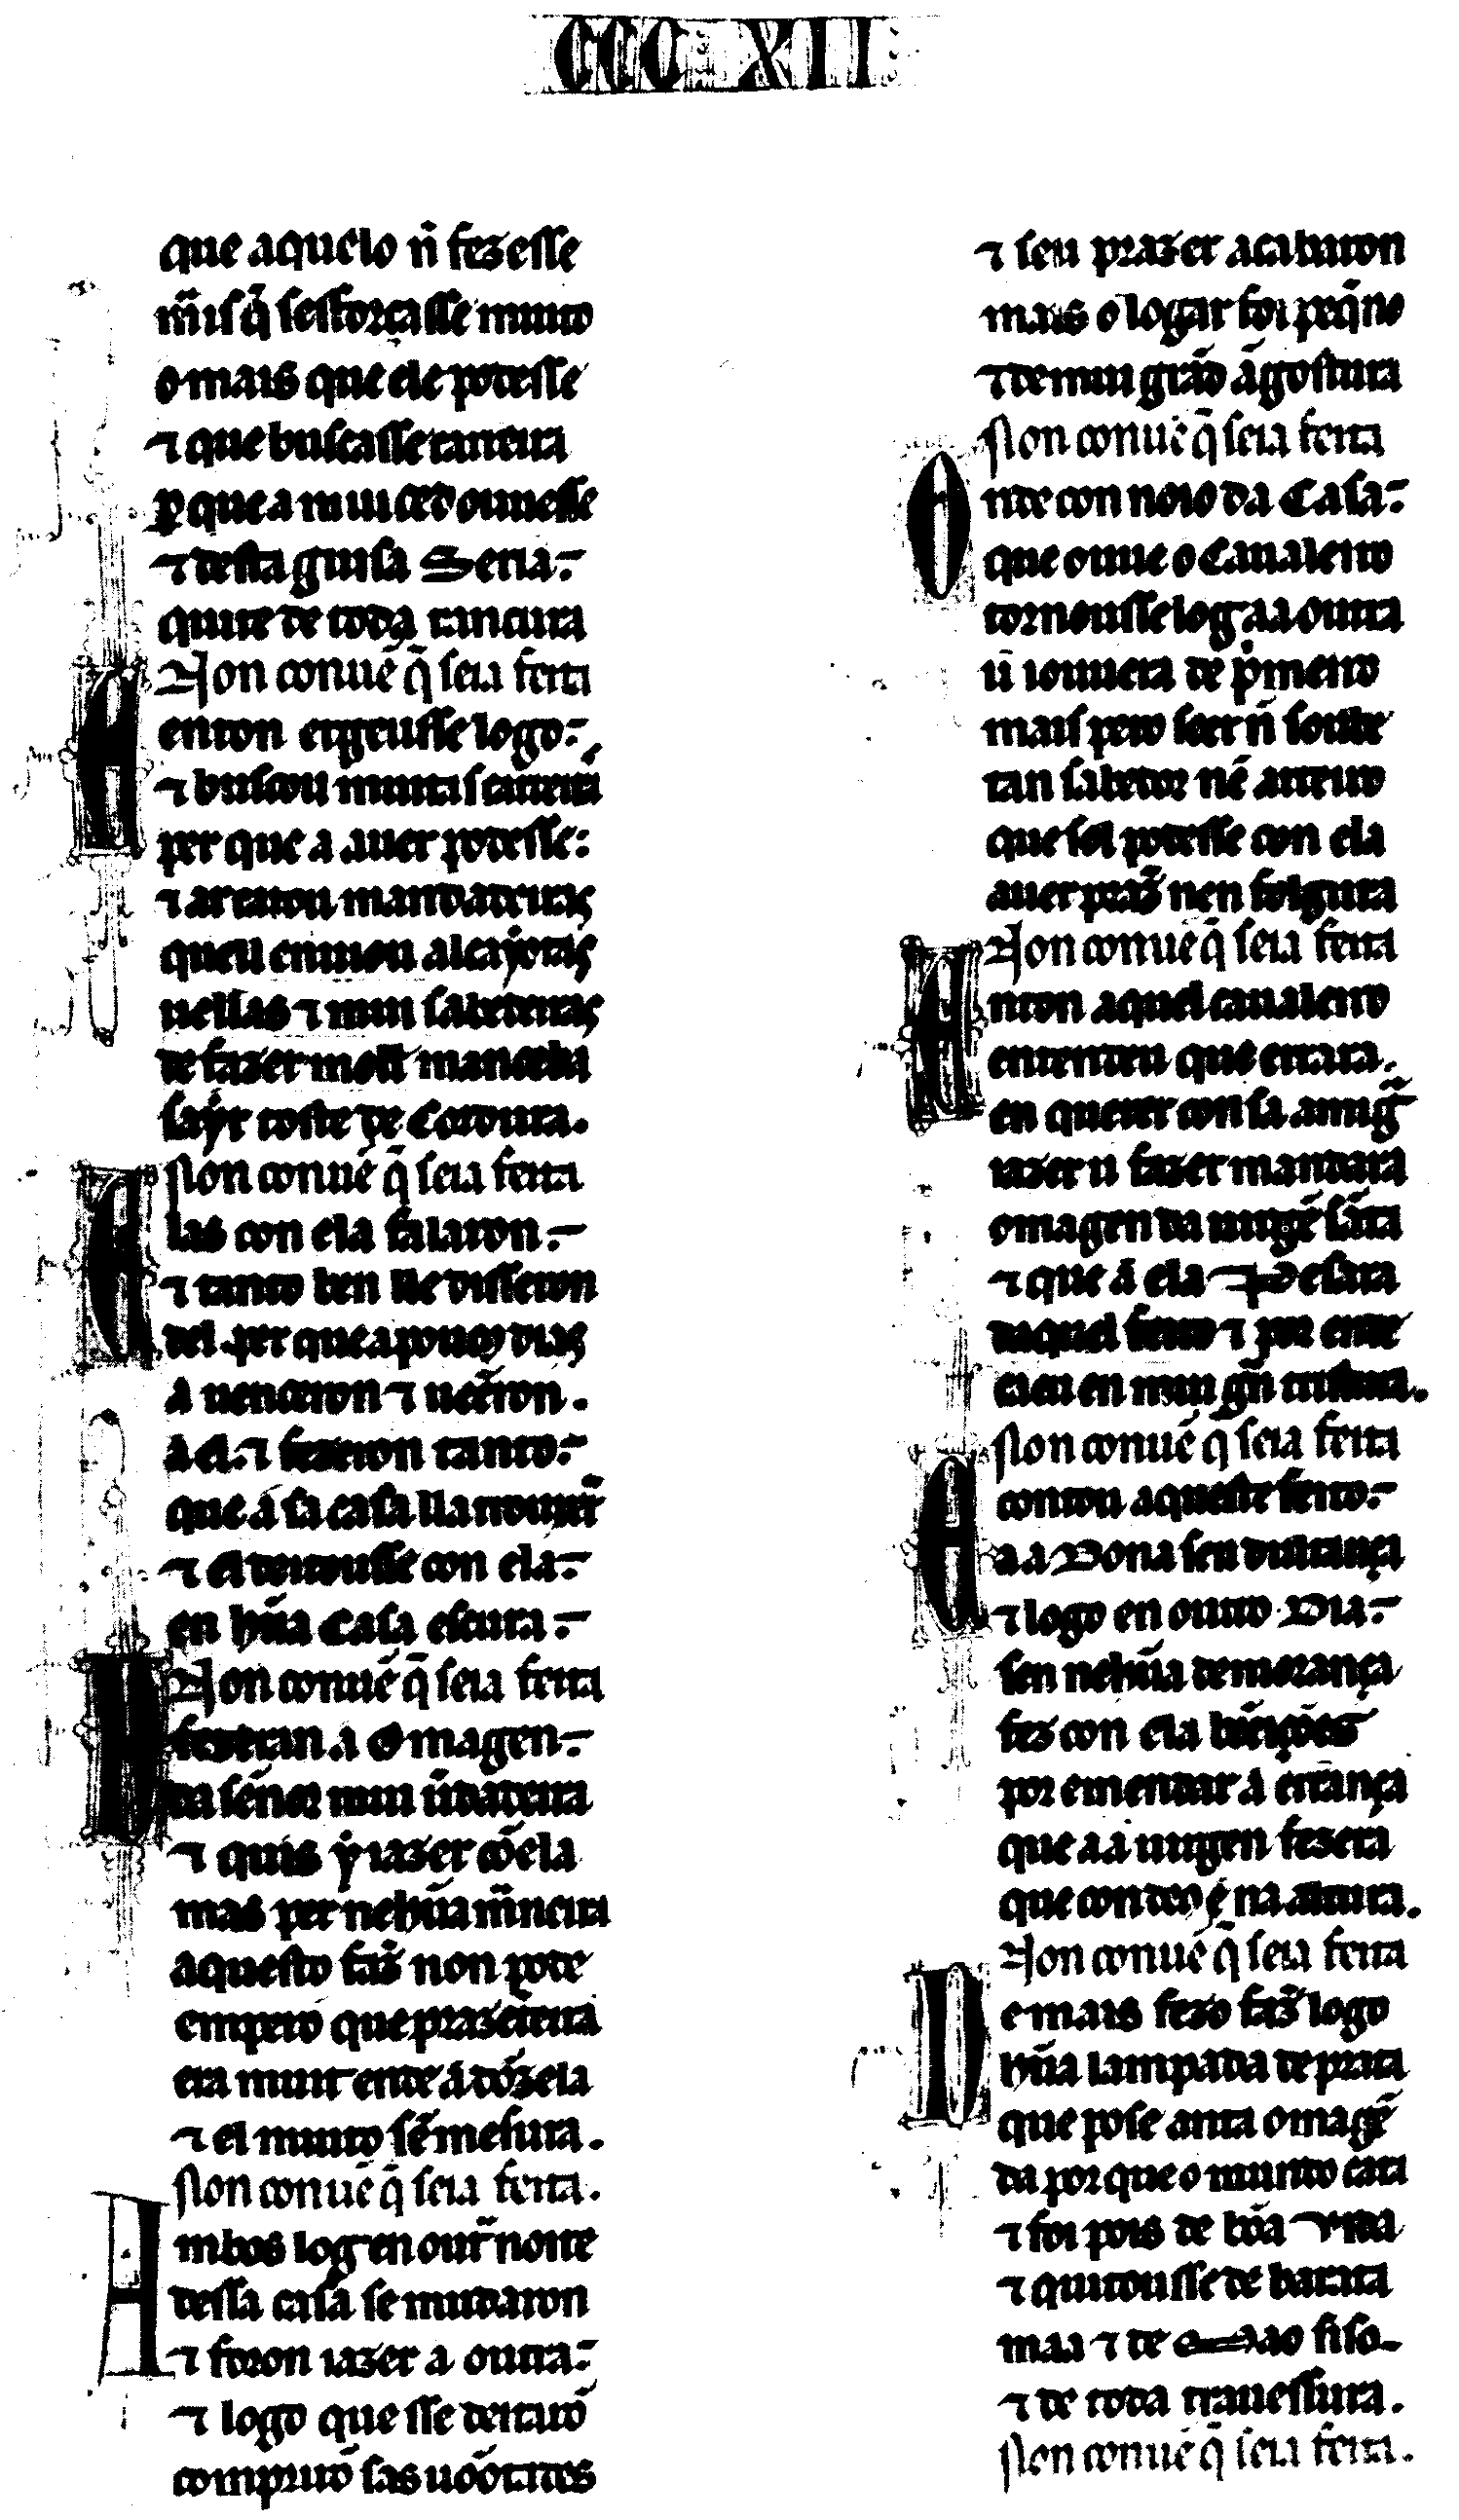 CCC XII
que aquelo nõ fezesse
mais q̃ sesforçasse muito
o mais que ele podesse
⁊ que buscasse carreira
per que a mui ced ouuesse
⁊ desta guisa Seria:
quite de toda rancura
Non conuẽ q̃ seia feita
enton ergeusse logo:
⁊ buscou muitas carreiras
per que a auer podesse:
⁊ achou mandadeiras
quell enuiou alcayotas
uellas ⁊ mui sabedeiras
de fazer moller manceba
sayr toste de Cordura.
Non conuẽ q̃ seia feita
Elas con ela falaron:
⁊ tanto ben lle disseron
del. per que a poucos dias
a uenceron ⁊ uẽeron.
a el. ⁊ fezeron tanto:
que á sa casa lla trouxerõ
⁊ el deitousse con ela:
en hũa Casa escura:
Non conuẽ q̃ seia feita
U fezeran a Omagen:
da sẽnor mui uerdadeira
⁊ quis y iazer cõ ela
mas per nehũa mãneira
aquesto faz̃ non pode
empero que prazenteira
era muit ende á dõzela
⁊ el muito sẽ mesura.
Non conuẽ q̃ seia feita.
Ambos log en outr̃ noite
dessa casa se mudaron
⁊ foron iazer a outra:
⁊ logo que sse deitarõ
comprirõ sas uoontades
⁊ seu prazer acabaron
mais o logar foi peq̃no
⁊ de mui grãd ãgostura
Non conuẽ q̃ seia feita
Onde con noio da Casa:
que ouue o Caualeiro
tornousse log aa outra
ũ iouuera de p̃meiro
mais pero seer nõ soube
tan sabedor nẽ arteiro
que sol podesse con ela
auer praz̃ nen folgura
Non conuẽ q̃ seia feita
Enton aquel caualeiro
entendeu que errara.
en querer con sa amiga
iazer u fazer mandara
omagen da uirgẽ sãta
⁊ que á ela Pesara
daquel feito ⁊ por ende
caeu en mui grã tristura.
Non conuẽ q̃ seia feita
E contou aqueste feito:
a a Dona sen dultança
⁊ logo en outro Dia:
sen nehũa demorança
fez con ela bẽeições
por emendar á errança
que a á uirgen fezera
que con deo é na altura.
Non conuẽ q̃ seia feita
Demais fezo faz̃ logo
hũa lampada de prata
que pose anta omagẽ
da por que o mundo cata
⁊ foi pois de bõa Uida
⁊ quitousse de barata
maa ⁊ de Mao siso-
⁊ de toda trauessura.
Non conuẽ q̃ seia feita.